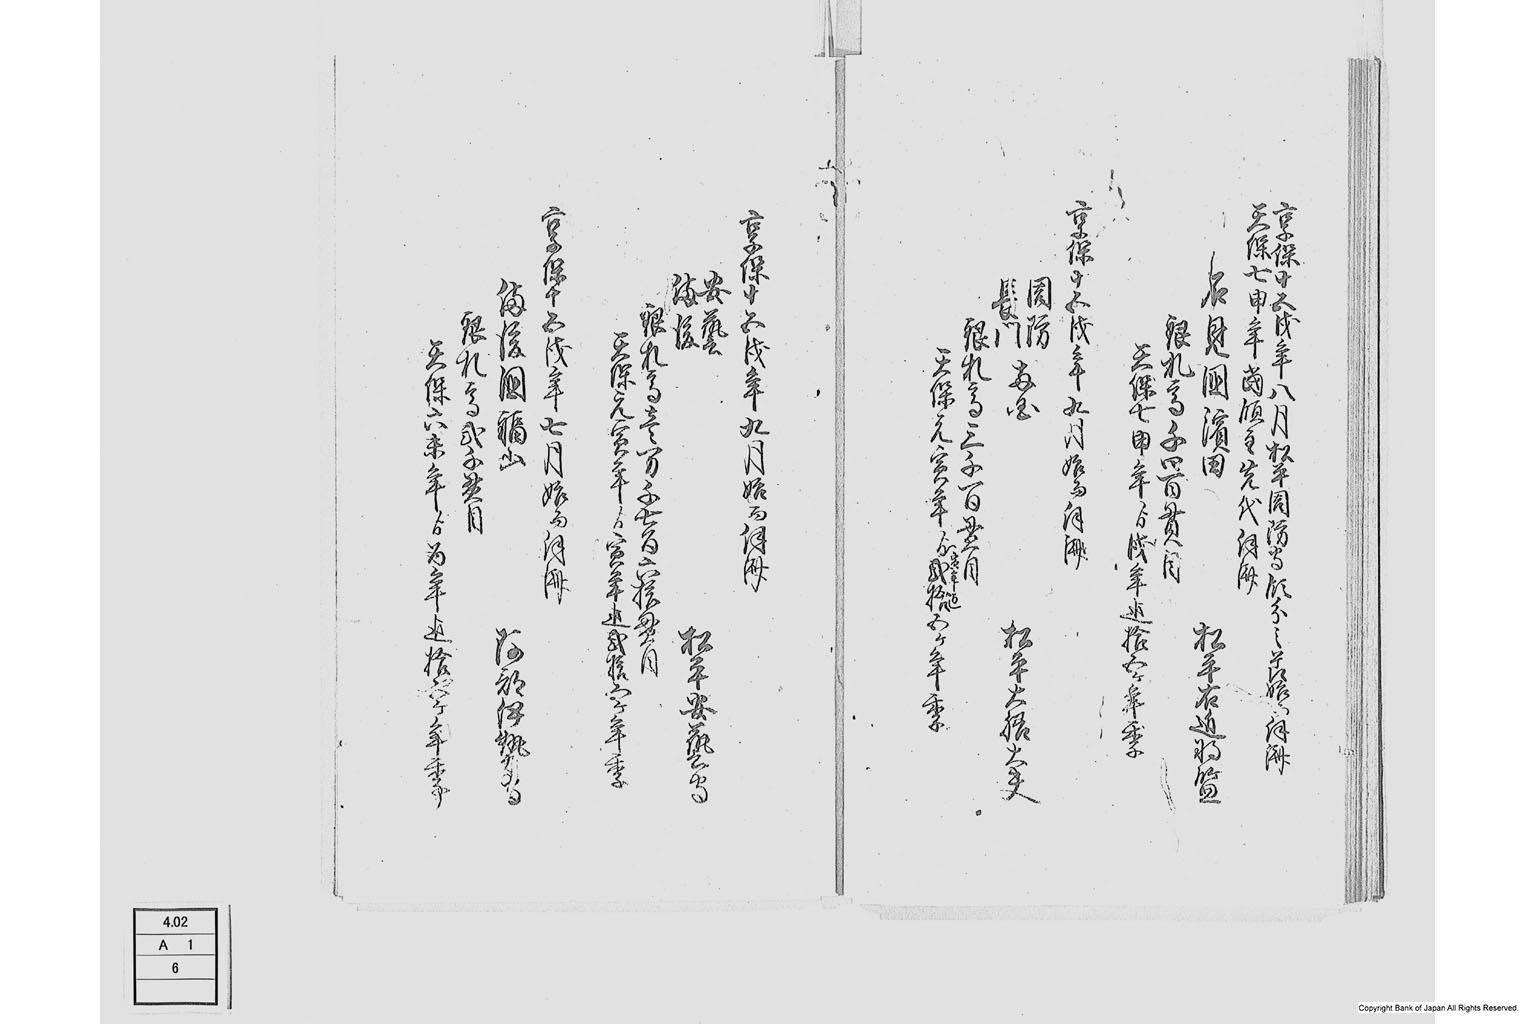 享保十五戌年八月松平周防守領分之節始而停漸
天保七申年当領主先代停漸
石見国濱田
松平右近将監
銀札高千四百貫目
天保七申年ゟ戌年迄拾五ヶ年季
享保十五戌年九月始而停漸
周防
長門 両国
松平大膳大夫
銀札高三千百貫目
天保元寅年ゟ寅年迄弐拾五ヶ年季
享保十五戌年九月始而停漸
安藝
備後
松平安藝守
銀札高壱万千七百六拾貫目
天保元寅年ゟ寅年迄弐拾五ヶ年季
享保十五戌年七月始而停漸
備後国福山
阿部伊勢守
銀札高弐千貫目
天保六未年ゟ 年迄拾五ヶ年季
4.02
A 1
6
Copyright Bank of Japan All Rights Reserved.